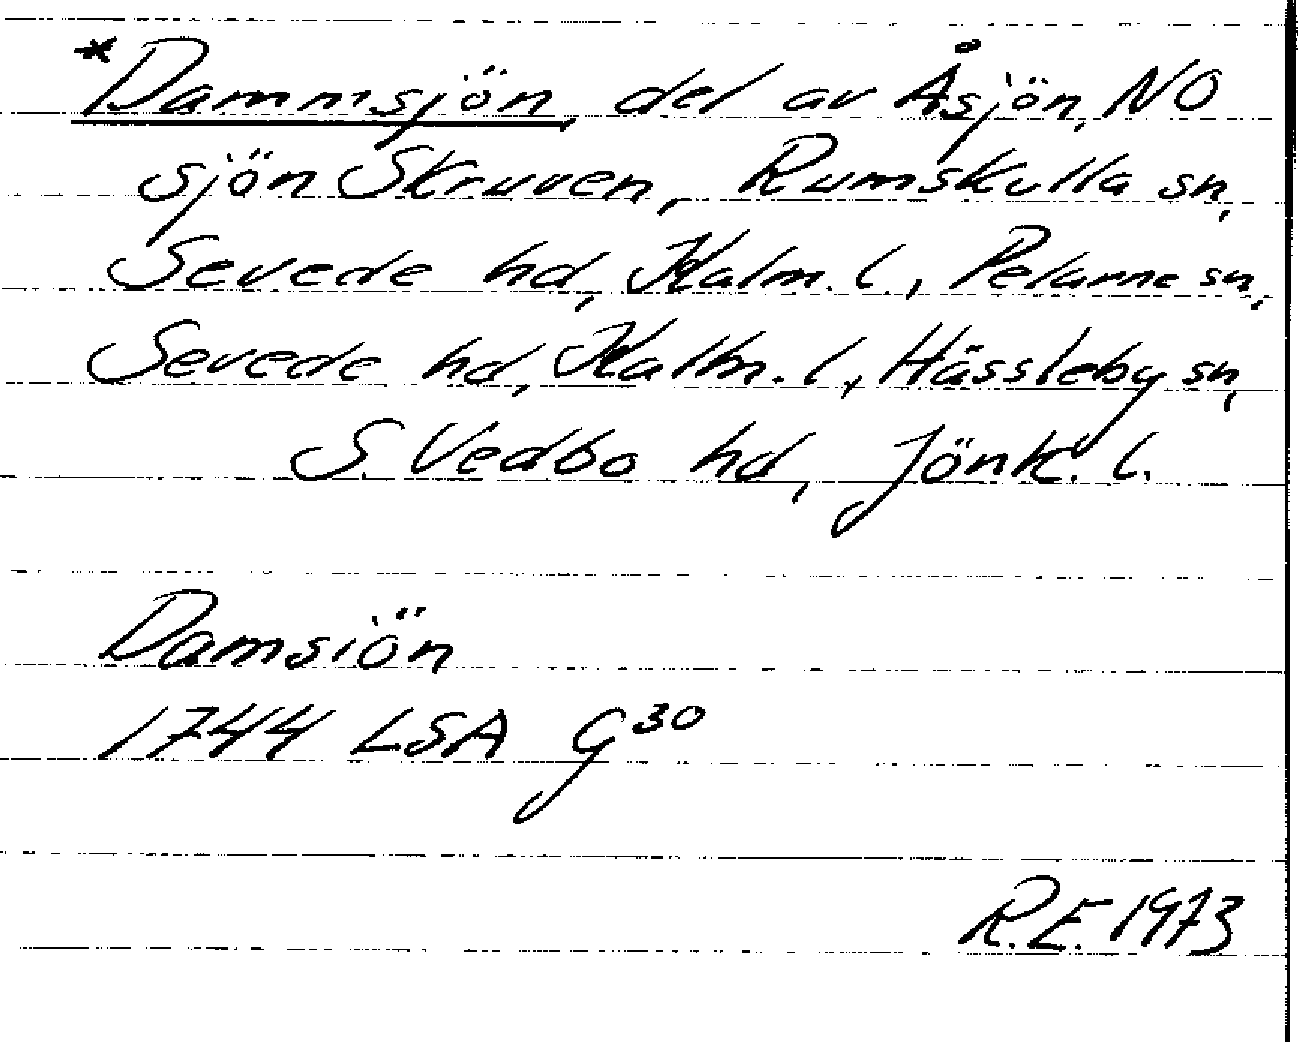 *Dammsjön, del av Åsjön, NO
sjön Skruven, Rumskulla sn,
Sevede hd, Kalm. l., Pelarne sn,
Sevede hd, Kalm. l., Hässleby sn,
S. Vedbo hd, Jönk. l.
Damsiön
1744 LSA G30
R.E. 1973